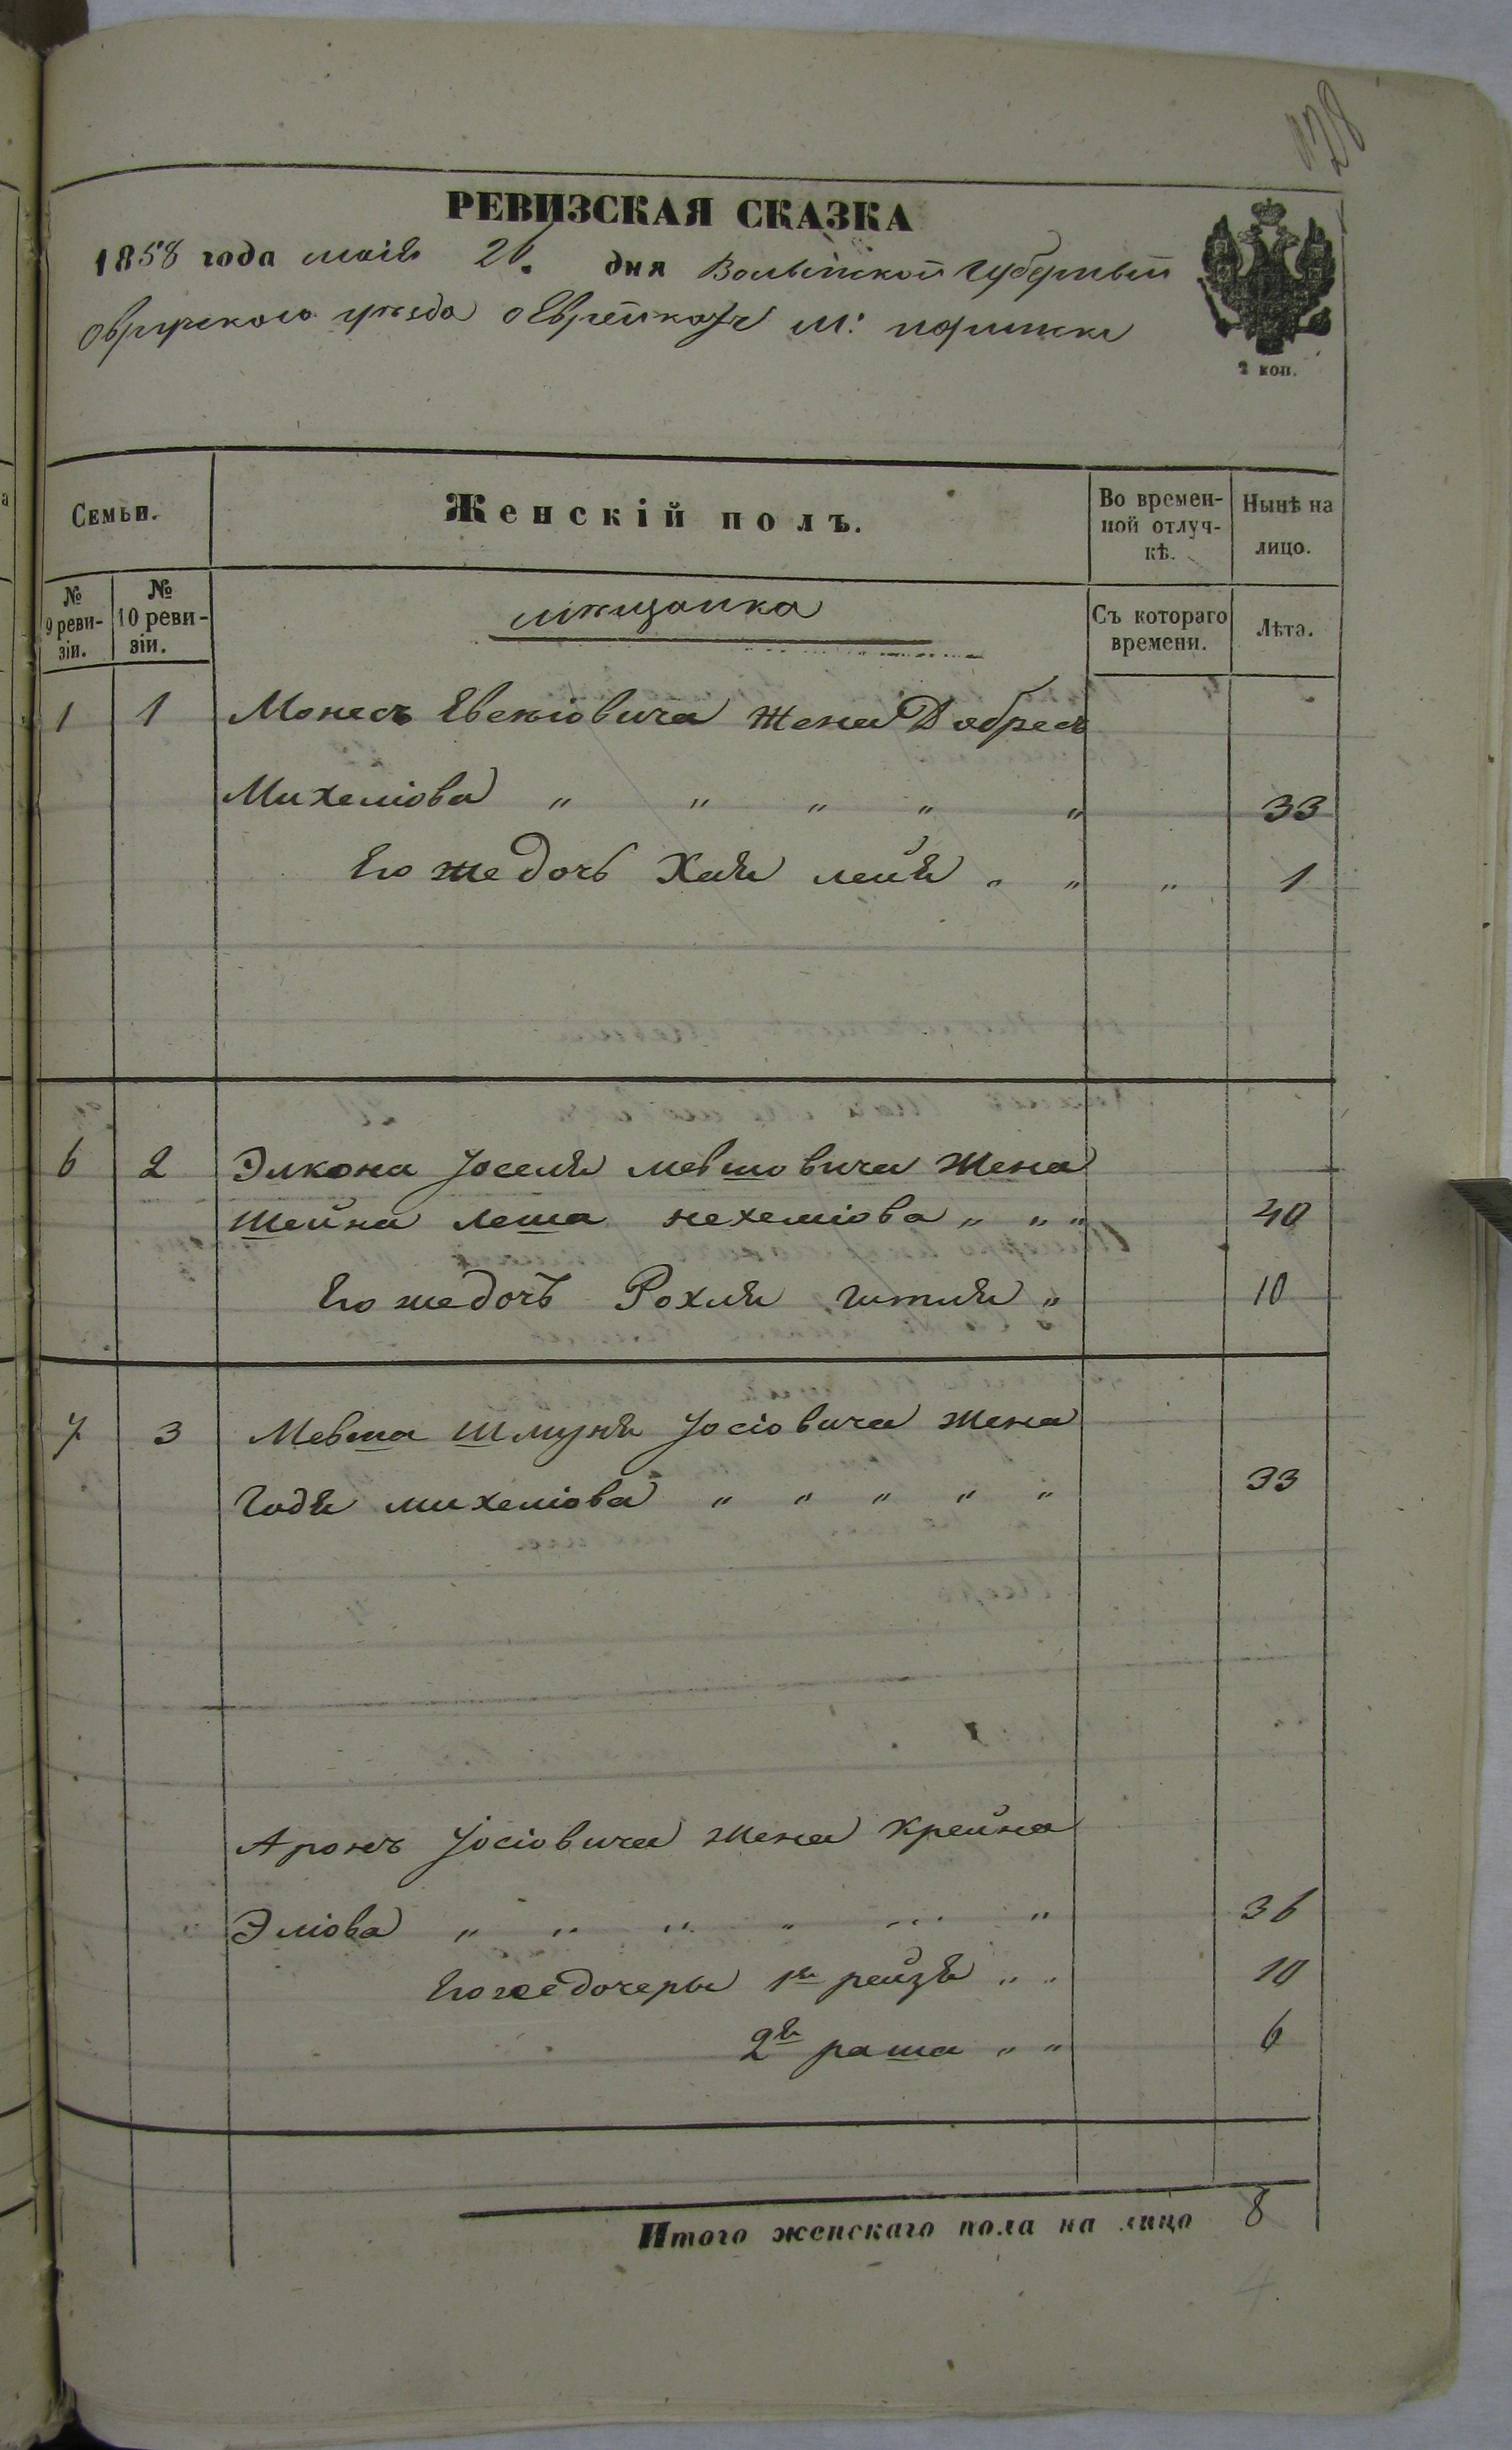 128
РЕВИЗСКАЯ СКАЗКА
1858 года маія 20. дня Волынской губерныи
Овруцкого уѣзда о Еврейкахъ м:
2 коп.
Семьи.
Женскій полъ.
Во времен-
ной отлуч-
кѣ.
Нынѣ на
лицо.
№
9 реви-
зіи.
№
10 реви-
зіи.
мѣщанка
Съ котораго
времени.
Лѣта.
1 1 Монесъ Евеніовича жена Добресъ
Михеліова " " " " " 33
Его же дочь Хая лейя " " " 1
6 2 Элкона Јоселя мевшовича жена
Шейна леша нехеміова " " " 40
Его же дочь Рохля гитля " 10
7 3 Мевша Шмуня Јосіовича жена
Годя михеліова " " " " " 33
Аронъ Јосіовича жена крейна
Эліова " " " " " " 36
Его же дочеры 1я рейзя " " 10
2я раша " " 6
Итого женскаго пола на лицо 8
4.